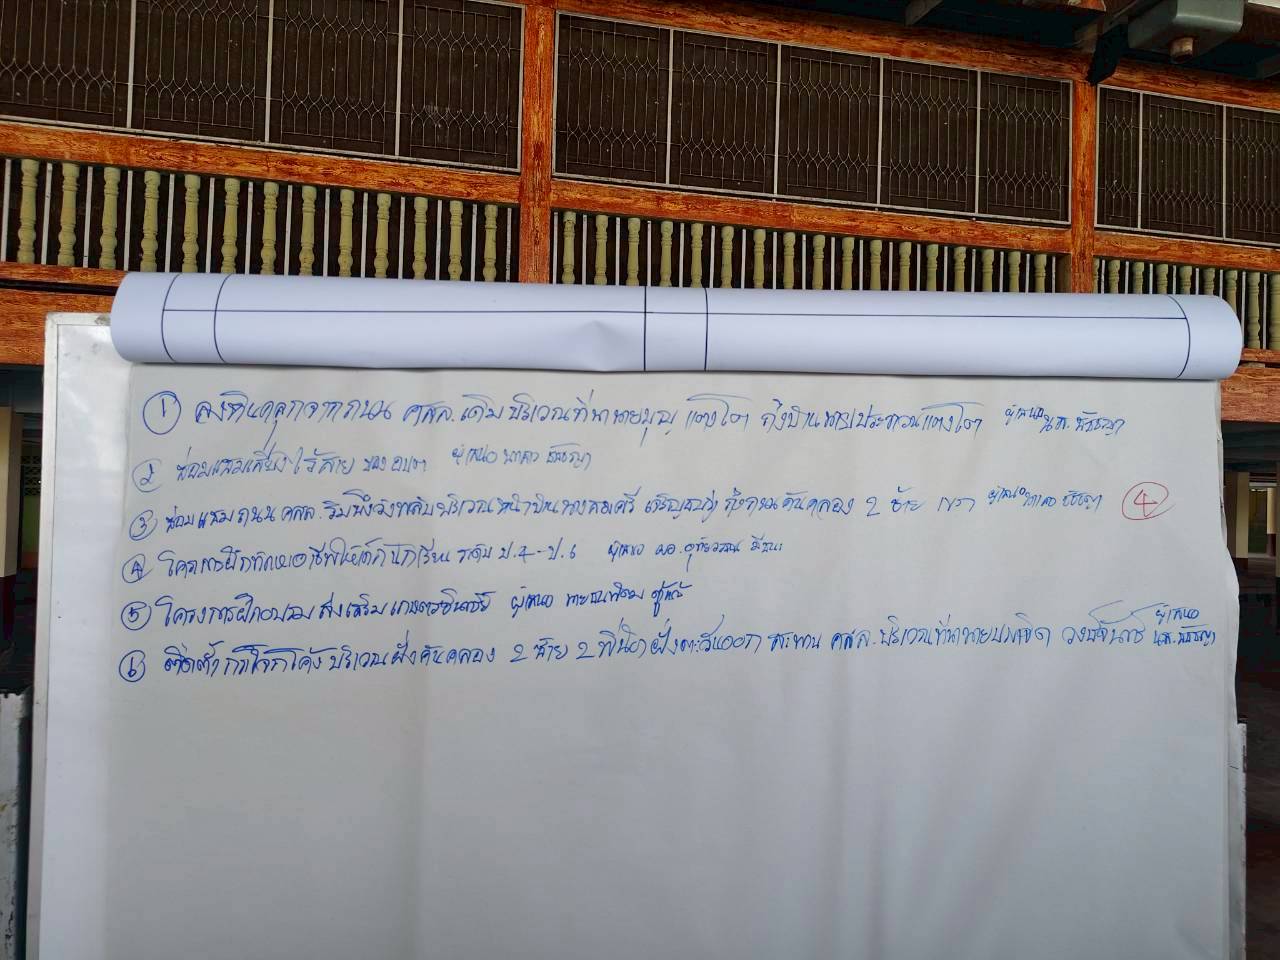 ① ลงหินคลุกจากถนน คสล.เดิม บริเวณที่นานายบุญ แตงโต ถึงบ้านนายประจวบ แตงโต ผู้เสนอ น.ส.ธัญญา
② ซ่อมแซมเสียงไร้สาย ของ อบต ผู้เสนอ นางสาว ธัญญา
③ ซ่อมแซมถนน คสล. ริมบึง บริเวณหน้าบ้านนางสมศรี ถึงถนนคันคลอง 2 ซ้าย ผู้เสนอ นางสาว ธัญญา ④
④ โครงการฝึกทักษะอาชีพให้เด็กนักเรียน ระดับ ป.4-ป.6 ผู้เสนอ ผอ.
⑤ โครงการฝึกอบรม ส่งเสริม เกษตรอินทรีย์ ผู้เสนอ นาย
⑥ ติดตั้งกระจกโค้ง บริเวณฝั่งคันคลอง 2 ซ้าย ฝั่งตะวันออก สะพาน คสล. บริเวณที่นานาย ผู้เสนอ น.ส.ธัญญา